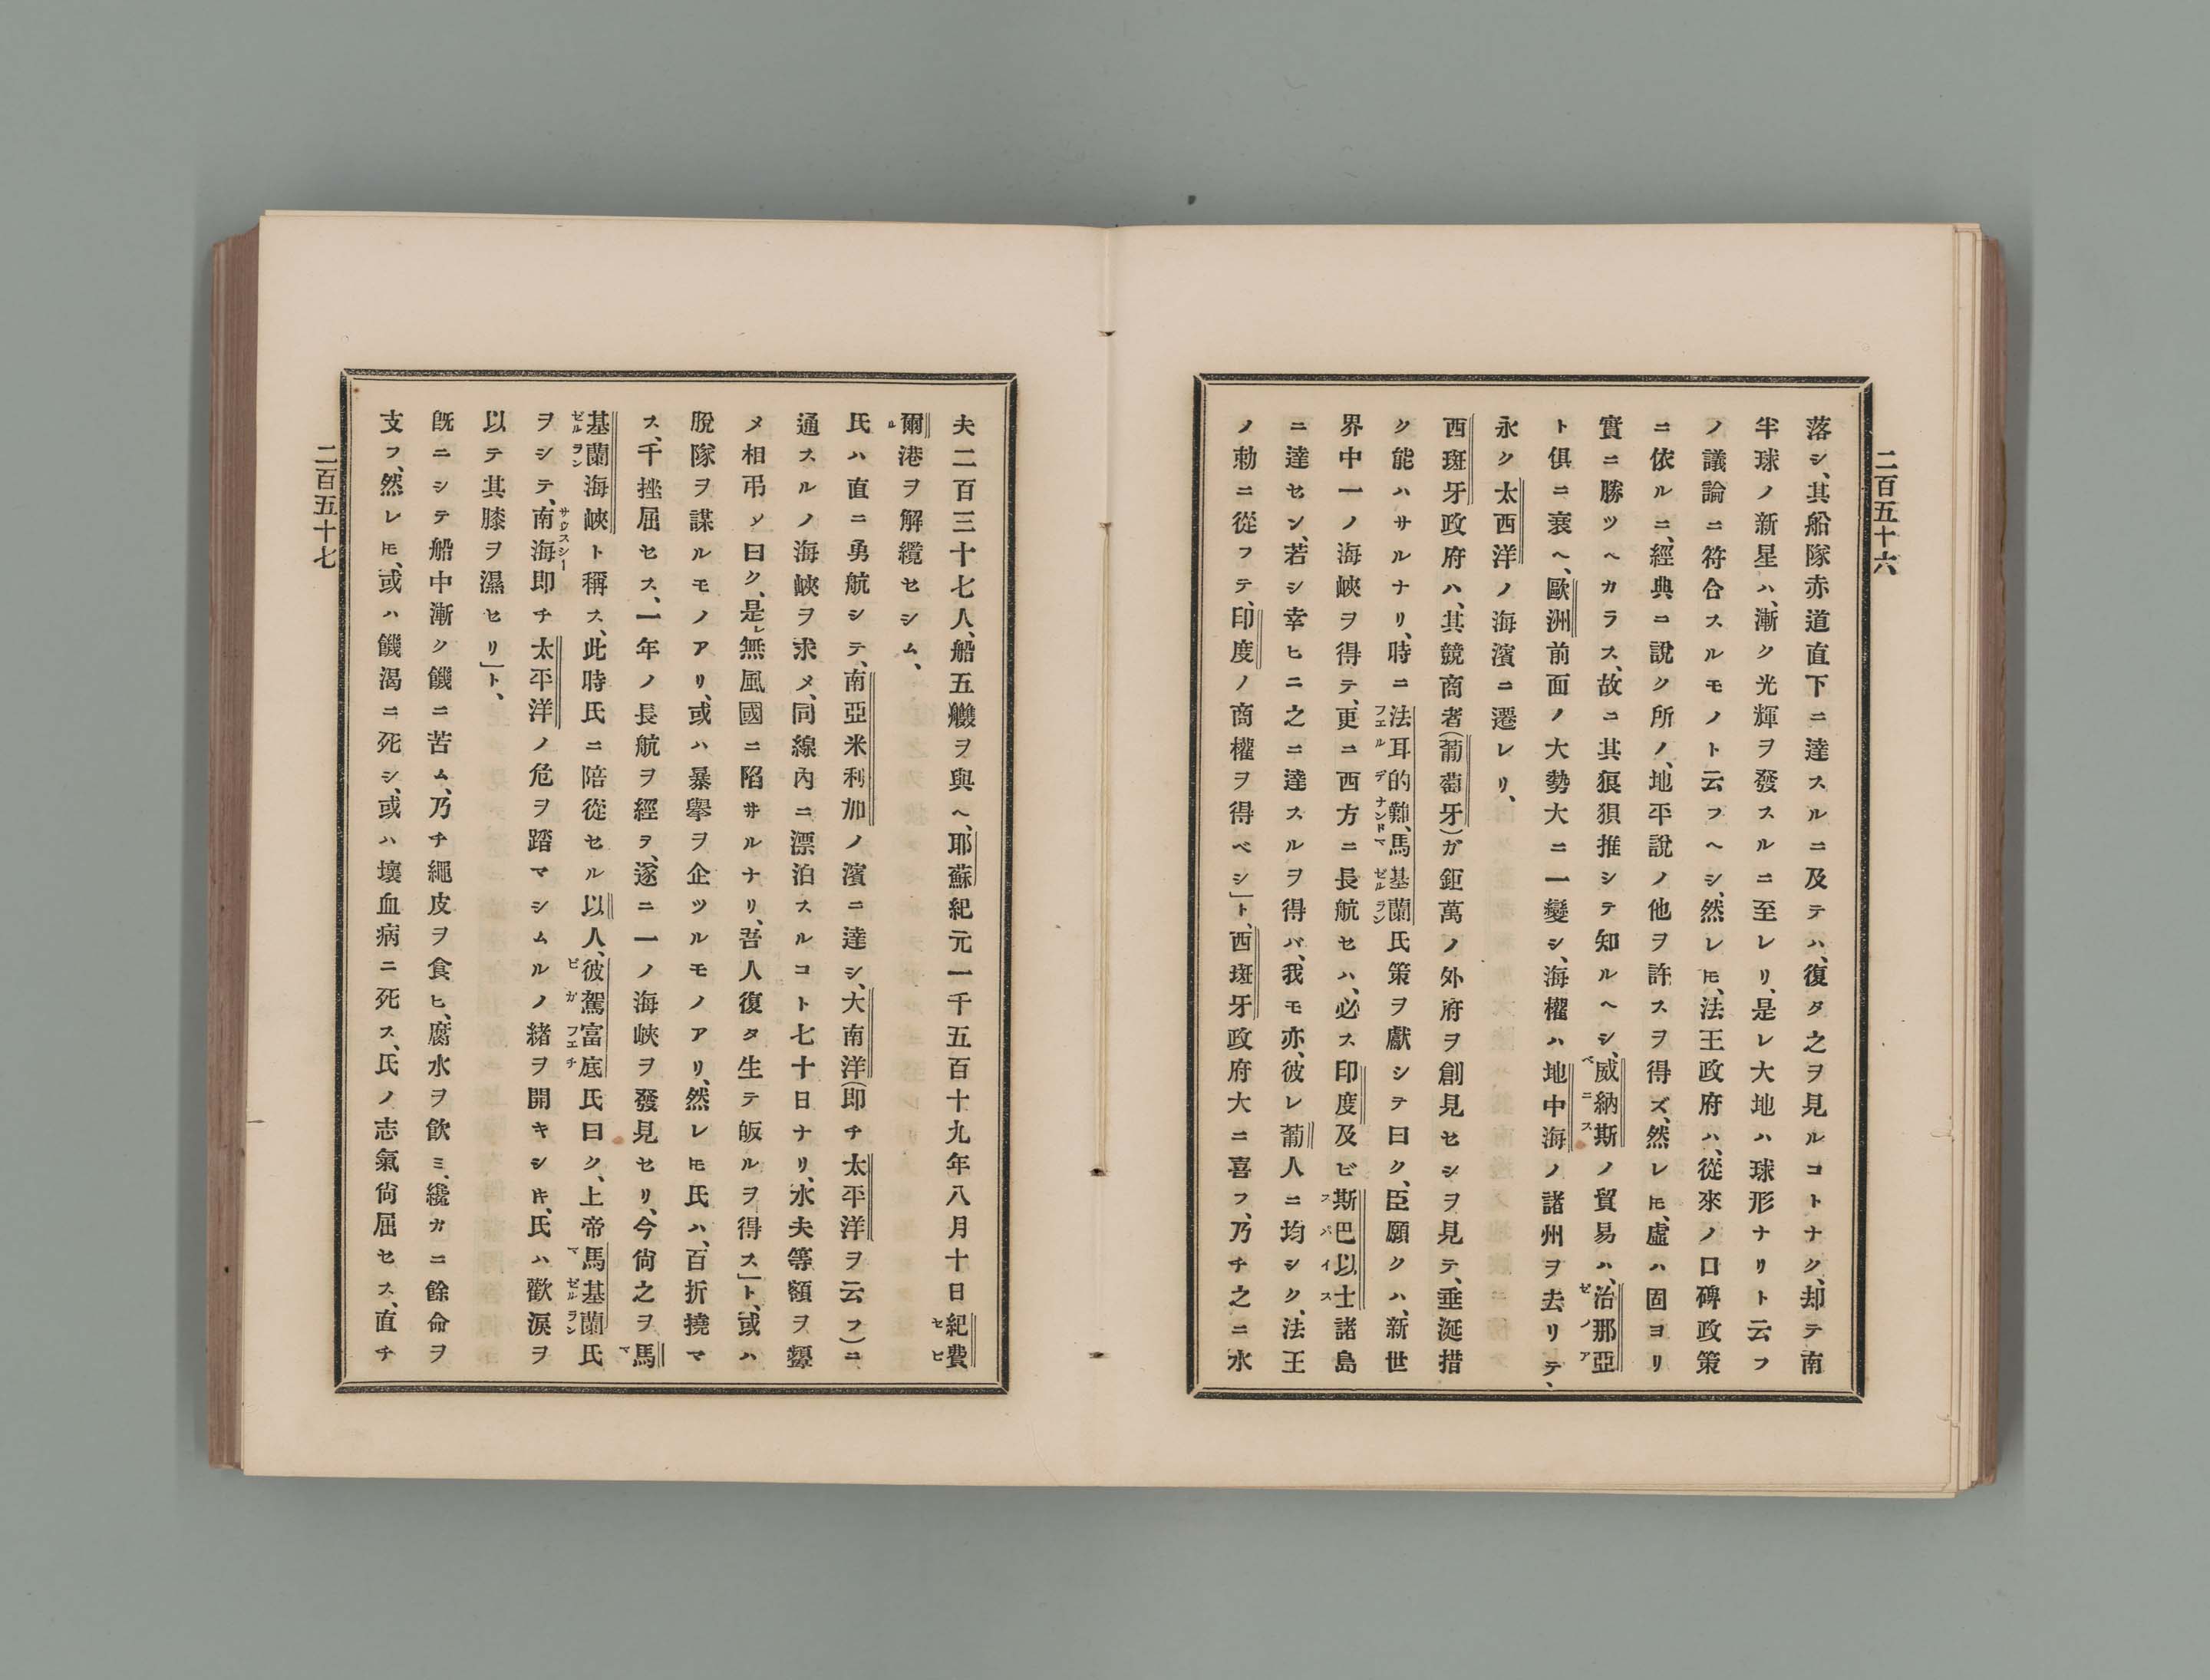 二百五十六
落シ、其船隊赤道直下ニ達スルニ及テハ、復タ之ヲ見ルコトナク、却テ南
半球ノ新星ハ、漸ク光輝ヲ發スルニ至レリ、是レ大地ハ球形ナリト云フ
ノ議論ニ符合スルモノト云フヘシ、然レ𪜈、法王政府ハ、從來ノ口碑政策
ニ依ルニ、經典ニ說ク所ノ、地平說ノ他ヲ許スヲ得ズ、然レ𪜈、虛ハ固ヨリ
實ニ勝ツヘカラス、故ニ其狼狽推シテ知ルヘシ、威納斯ノ貿易ハ、治那亞
ベニス
ゼノア
ト俱ニ衰ヘ、歐洲前面ノ大勢大ニ一變シ、海權ハ地中海ノ諸州ヲ去リテ、
永ク太西洋ノ海濱ニ遷レリ、
西斑牙政府ハ、其競商者(葡萄牙)ガ鉅萬ノ外府ヲ創見セシヲ見テ、垂涎措
ク能ハサルナリ、時ニ法耳的難、馬基蘭氏策ヲ獻シテ曰ク、臣願クハ、新世
フエルデナンドマゼルラン
界中一ノ海峽ヲ得テ、更ニ西方ニ長航セハ、必ス印度及ビ斯巴以士諸島
スパイス
ニ達セン、若シ幸ヒニ之ニ達スルヲ得バ、我モ亦、彼レ葡人ニ均シク、法王
ノ勅ニ從フテ、印度ノ商權ヲ得ベシ」ト、西斑牙政府大ニ喜フ、乃チ之ニ水
夫二百三十七人、船五艘ヲ與ヘ、耶蘇紀元一千五百十九年八月十日紀費
セヒ
爾港ヲ解纜セシム、
ル
氏ハ直ニ勇航シテ、南亞米利加ノ濱ニ達シ、大南洋(即チ太平洋ヲ云フ)ニ
通スルノ海峽ヲ求メ、同線內ニ漂泊スルコト七十日ナリ、水夫等額ヲ顰
メ相弔ソ曰ク、是レ無風國ニ陷サルナリ、吾人復タ生テ皈ルヲ得ス」ト、或ハ
脫隊ヲ謀ルモノアリ、或ハ暴擧ヲ企ツルモノアリ、然レ𪜈氏ハ、百折撓マ
ス、千挫屈セス、一年ノ長航ヲ經ヲ、遂ニ一ノ海峽ヲ發見セリ、今尙之ヲ馬
マ
基蘭海峽ト稱ス、此時氏ニ陪從セル以人、彼駕富底氏曰ク、上帝馬基蘭氏
ゼルラン
ピガフエチ
マゼルラン
ヲシテ、南海即チ太平洋ノ危ヲ踏マシムルノ緖ヲ開キシ𪜈、氏ハ歡淚ヲ
サウスシー
以テ其膝ヲ濕セリ」ト、
旣ニシテ船中漸ク饑ニ苦ム、乃チ繩皮ヲ食ヒ、腐水ヲ飮ミ、纔カニ餘命ヲ
支フ、然レ𪜈、或ハ饑渴ニ死シ、或ハ壞血病ニ死ス、氏ノ志氣尙屈セス、直チ
二百五十七